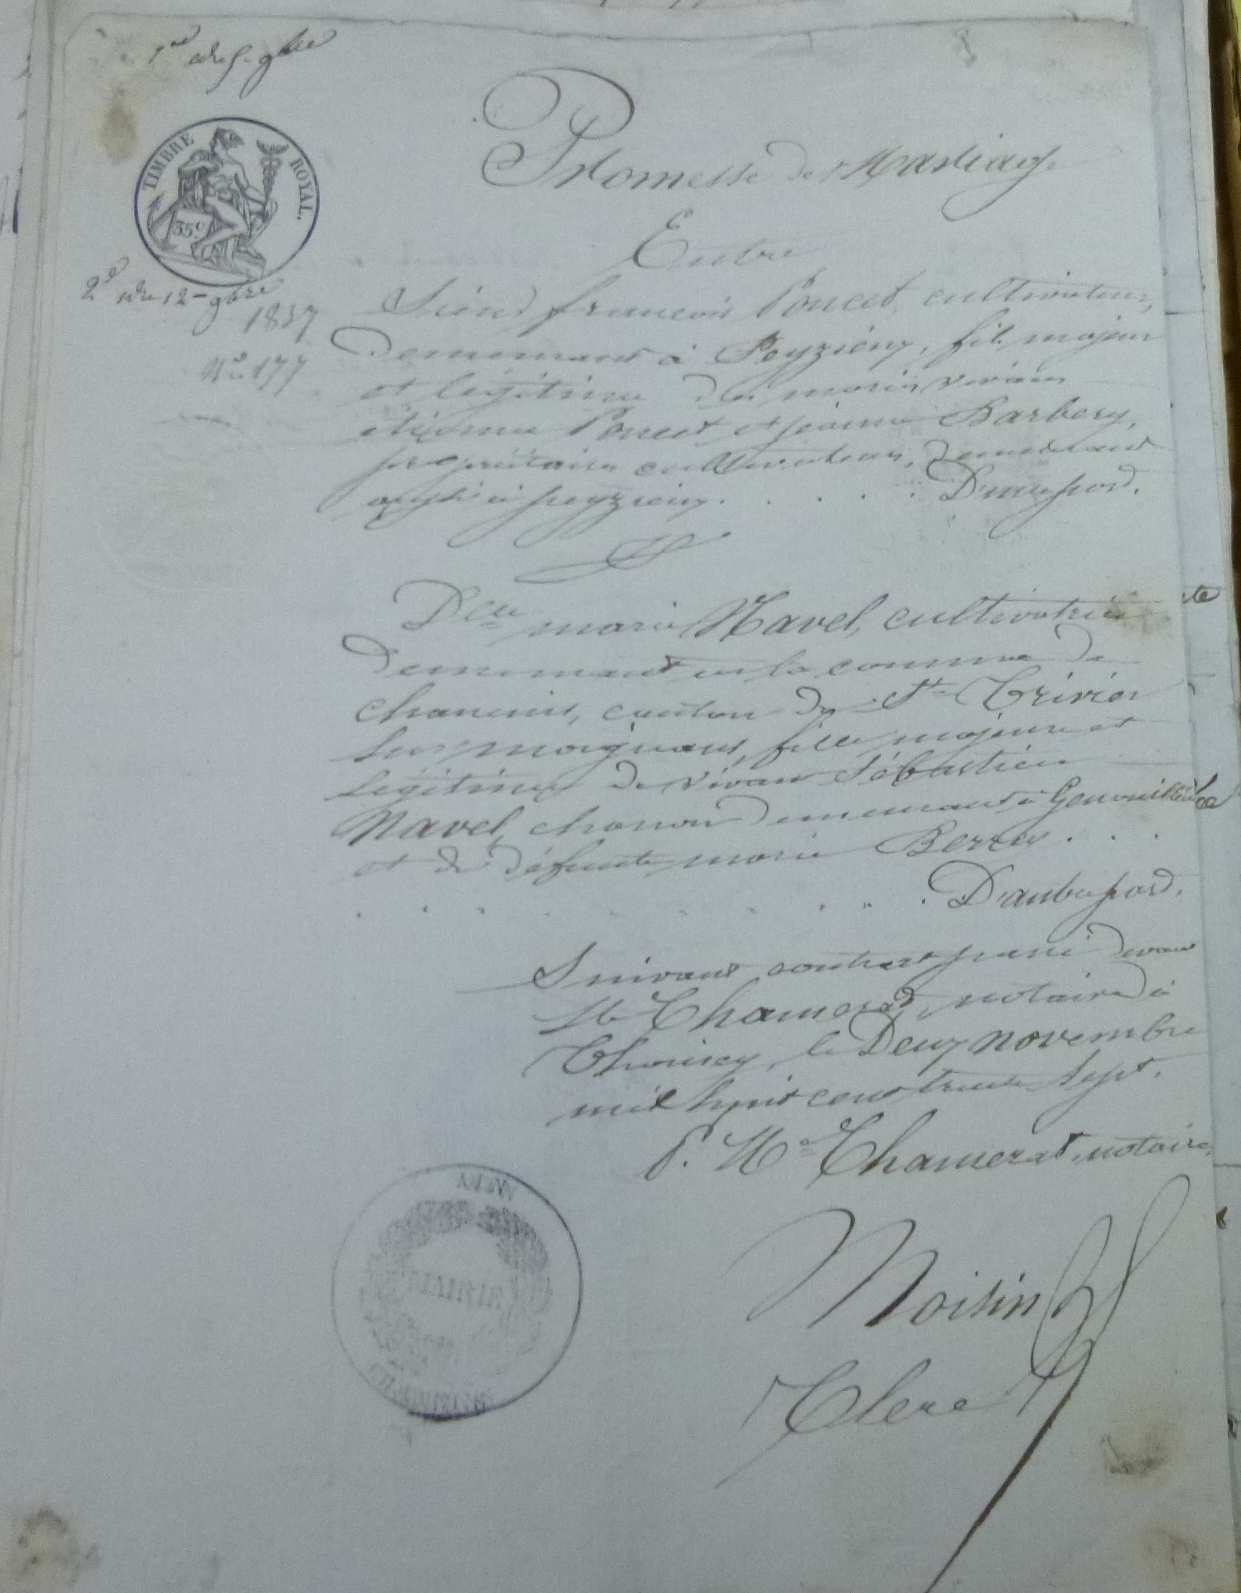 1re
TIMBRE ROYAL.
35c
Promesse de Mariage
Entre
2e
1837
No 177
Sieur françois Poncet, cultivateur,
demeurant à Peyzieux, fils majeur
et légitime des mariés vivans
étienne Poncet et jeanne Barbery,
propriétaires cultivateurs, demeurant
aussi à peyzieux. D'une part.
Et
Dlle marie Navel, cultivatrice
demeurant en la commune de
chaneins, canton de St Trivier
sur moignans, fille majeure et
légitime de vivant Sébastien
Navel, charron demeurant à Genouilleux
et de défunte marie
D'autre part.
Suivant contrat passé devant
Me Thamerat, notaire à
Thoissey, le Deux novembre
mil huit cent trente sept.
P. Me Thamerat, notaire,
Moisin
Clerc